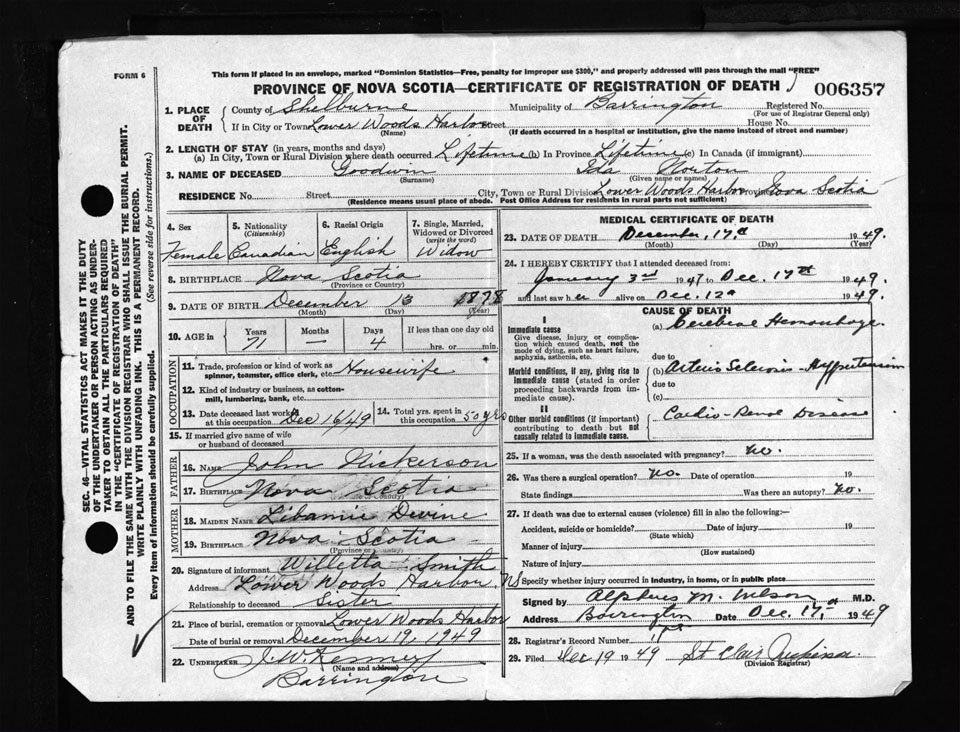 FORM 6
This form if placed in an envelope, marked "Dominion Statistics—Free, penalty for improper use $300," and properly addressed will pass through the mail "FREE"
PROVINCE OF NOVA SCOTIA—CERTIFICATE OF REGISTRATION OF DEATH
006357
1. PLACE OF DEATH
County of Shelburne Municipality of Barrington Registered No.
(For use of Registrar General only)
If in City or Town Lower Woods Harbor Street House No.
(Name) (If death occurred in a hospital or institution, give the name instead of street and number)
2. LENGTH OF STAY (in years, months and days)
(a) In City, Town or Rural Division where death occurred Lifetime (b) In Province Lifetime (c) In Canada (if immigrant)
3. NAME OF DECEASED Goodwin Ida Norton
(Surname) (Given name or names)
RESIDENCE No. Street City, Town or Rural Division Lower Woods Harbor Province Nova Scotia
(Residence means usual place of abode. Post Office Address for residents in rural parts not sufficient)
4. Sex 5. Nationality (Citizenship) 6. Racial Origin 7. Single, Married, Widowed or Divorced (write the word)
Female Canadian English Widow
8. BIRTHPLACE Nova Scotia
(Province or Country)
9. DATE OF BIRTH December 13 1878
(Month) (Day) (Year)
10. AGE in Years Months Days If less than one day old
71 — 4 hrs. or min.
OCCUPATION
11. Trade, profession or kind of work as spinner, teamster, office clerk, etc. Housewife
12. Kind of industry or business, as cotton-mill, lumbering, bank, etc.
13. Date deceased last worked at this occupation Dec 16/49 14. Total yrs. spent in this occupation 50 yrs
15. If married give name of wife or husband of deceased
FATHER
16. NAME John Nickerson
17. BIRTHPLACE Nova Scotia
MOTHER
18. MAIDEN NAME Libamie Devine
19. BIRTHPLACE Nova Scotia
(Province or Country)
20. Signature of informant Willetta Smith
Address Lower Woods Harbor NS
Relationship to deceased Sister
21. Place of burial, cremation or removal Lower Woods Harbor
Date of burial or removal December 19, 1949
22. UNDERTAKER J. W. Kenney
(Name and address)
Barrington
MEDICAL CERTIFICATE OF DEATH
23. DATE OF DEATH December, 17, 1949.
(Month) (Day) (Year)
24. I HEREBY CERTIFY that I attended deceased from:
January 3rd 1947 to Dec. 17th 1949
and last saw her alive on Dec. 12 1949.
CAUSE OF DEATH
I
Immediate cause
Give disease, injury or complication which caused death, not the mode of dying, such as heart failure, asphyxia, asthenia, etc.
(a) Cerebral Hemorrhage
due to
Morbid conditions, if any, giving rise to immediate cause (stated in order proceeding backwards from immediate cause).
(b) Arterio Sclerosis - Hypertension
due to
(c)
II
Other morbid conditions (if important) contributing to death but not causally related to immediate cause.
Cardio-Renal Disease
25. If a woman, was the death associated with pregnancy? no.
26. Was there a surgical operation? no. Date of operation 19
State findings Was there an autopsy? no.
27. If death was due to external causes (violence) fill in also the following:—
Accident, suicide or homicide? Date of injury 19
(State which)
Manner of injury
(How sustained)
Nature of injury
Specify whether injury occurred in industry, in home, or in public place
Signed by Alpheus M. Wilson M.D.
Address Barrington Date Dec. 17, 1949
28. Registrar's Record Number
29. Filed Dec 19 1949 St Clair
(Division Registrar)
SEC. 46—VITAL STATISTICS ACT MAKES IT THE DUTY
OF THE UNDERTAKER OR PERSON ACTING AS UNDERTAKER TO OBTAIN ALL THE PARTICULARS REQUIRED
IN THE "CERTIFICATE OF REGISTRATION OF DEATH"
AND TO FILE THE SAME WITH THE DIVISION REGISTRAR WHO SHALL ISSUE THE BURIAL PERMIT.
WRITE PLAINLY WITH UNFADING INK. THIS IS A PERMANENT RECORD.
Every item of information should be carefully supplied. (See reverse side for instructions.)